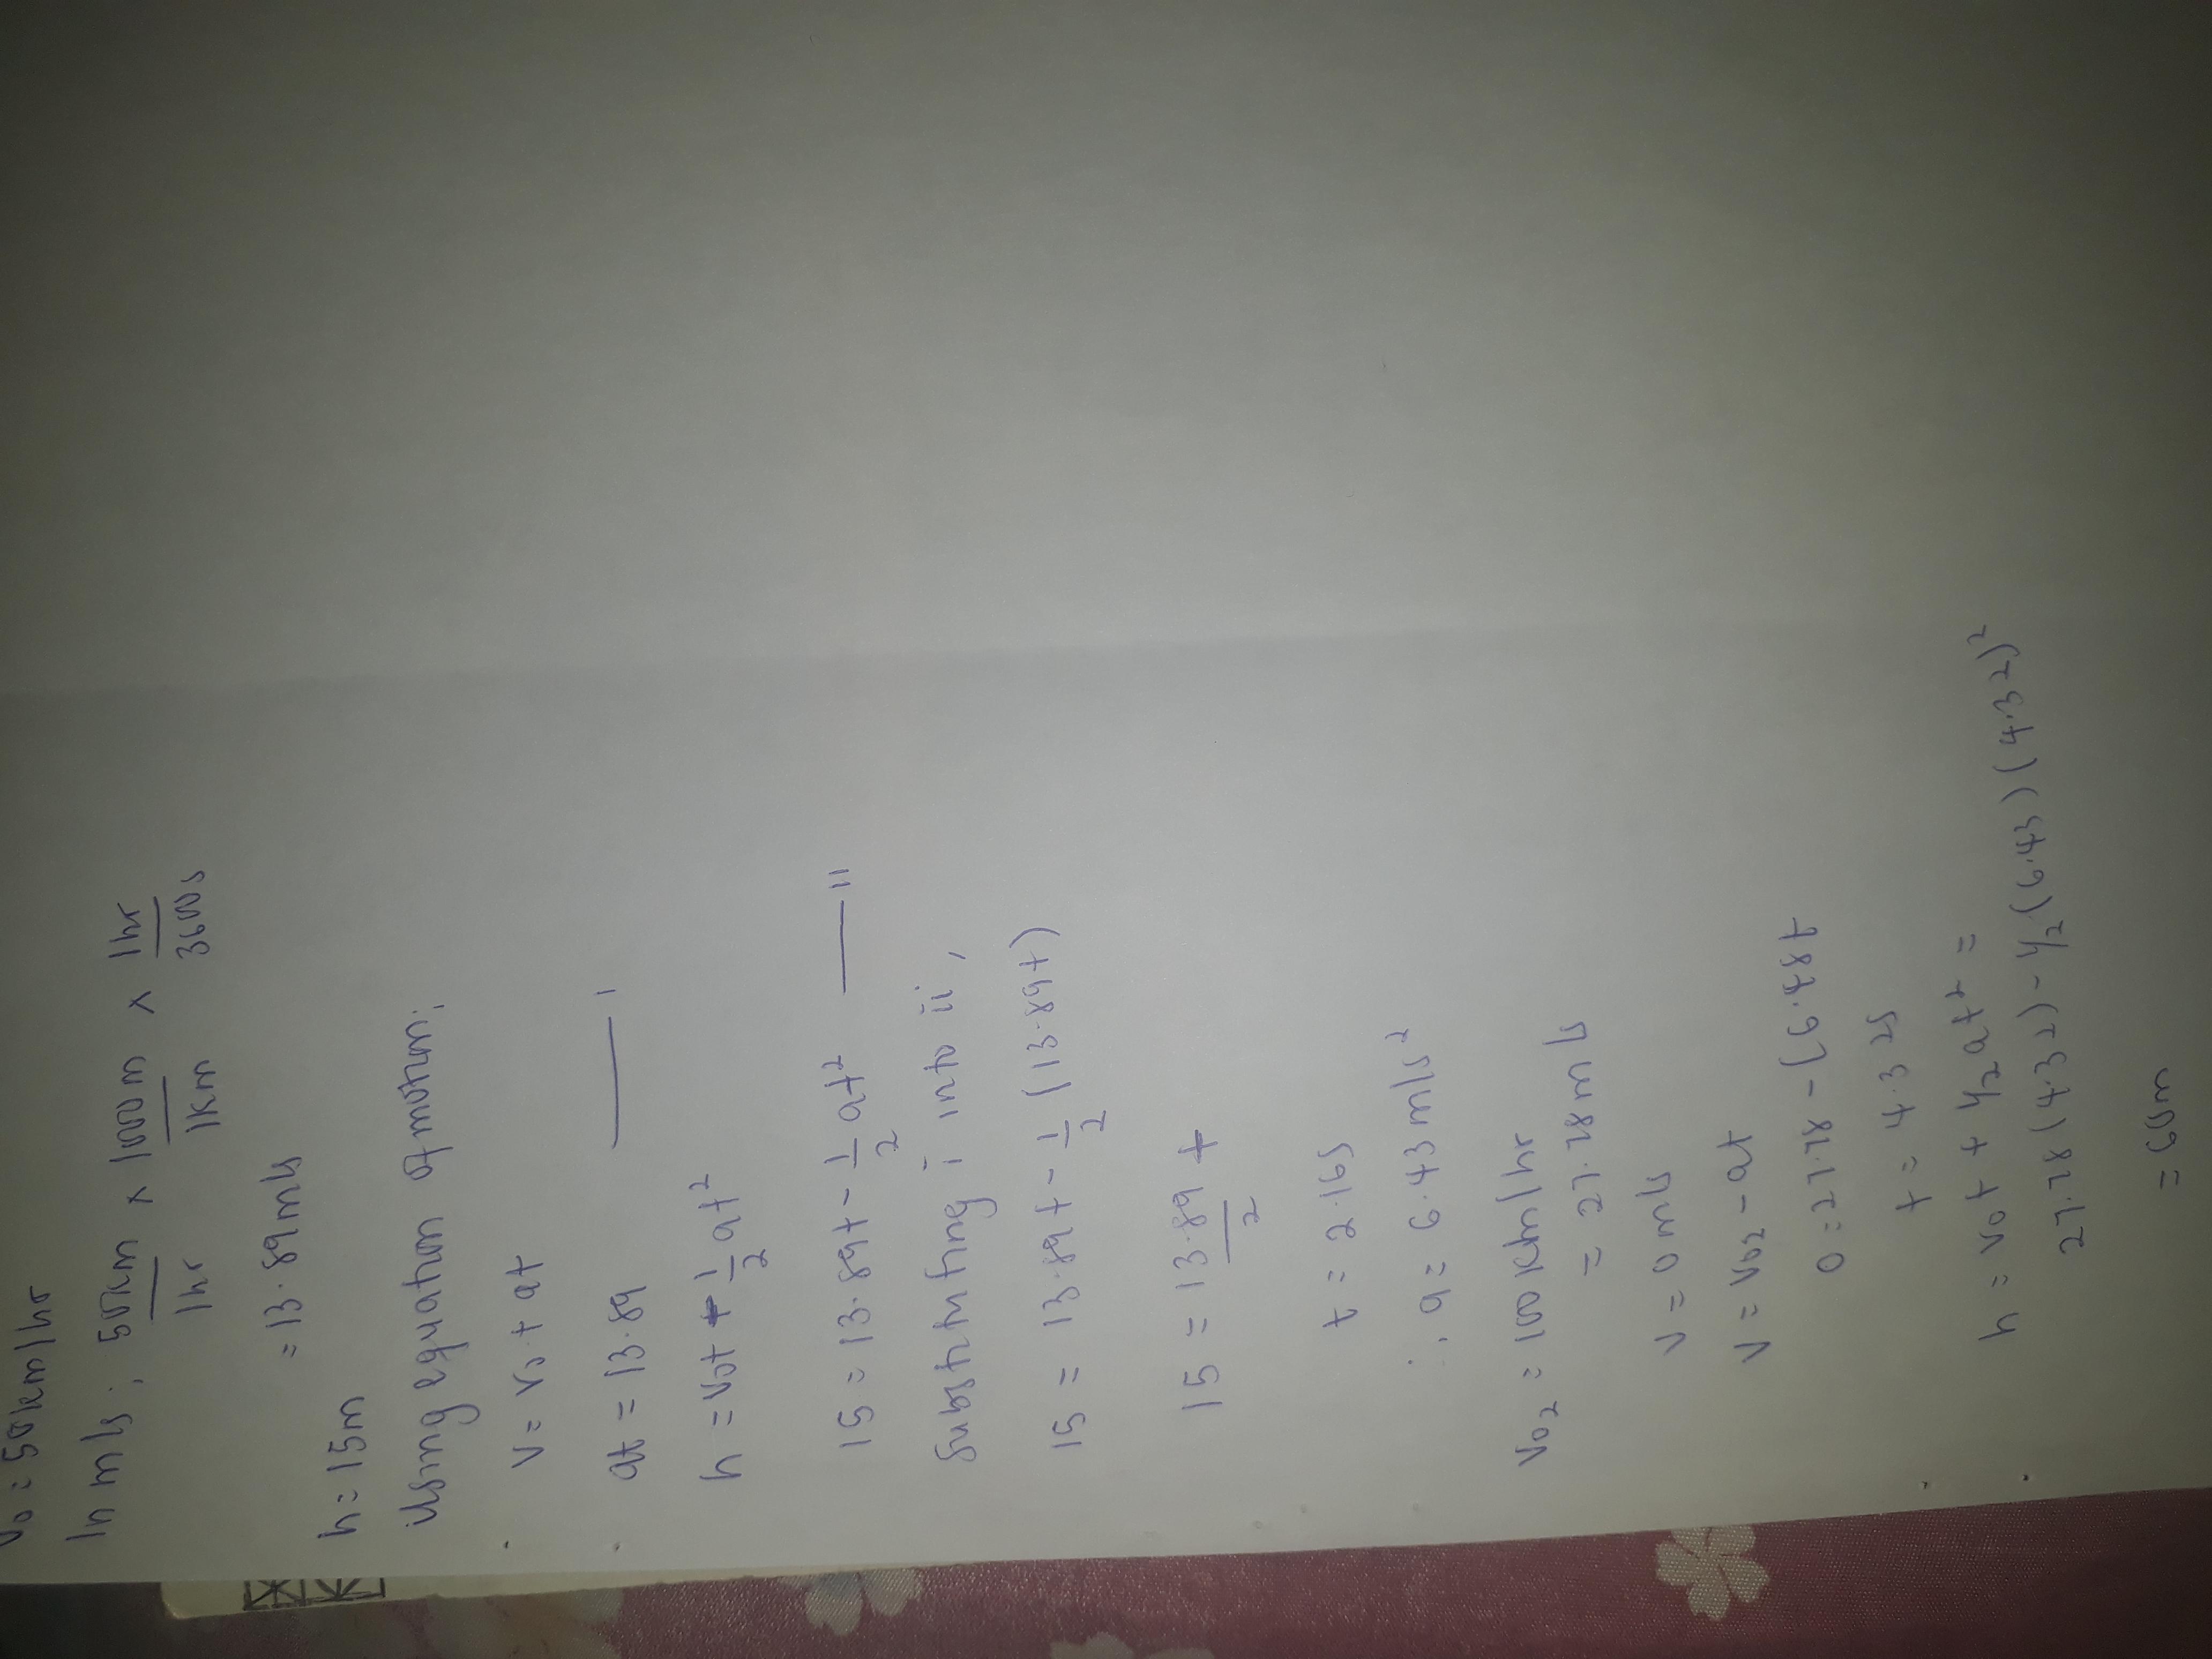 v₀ = 50km/hr
In m/s; 50km/1hr x 1000m/1km x 1hr/3600s
= 13.89m/s
h = 15m
Using equation of motion;
v = v₀ + at
at = 13.89 —— i
h = v₀t + 1/2 at²
15 = 13.89t - 1/2 at² —— ii
Substituting i into ii,
15 = 13.89t - 1/2 (13.89t)
15 = 13.89/2 t
t = 2.16s
∴ a = 6.43 m/s²
v₀₂ = 100 km/hr
= 27.78 m/s
v = 0 m/s
v = v₀₂ - at
0 = 27.78 - (6.48t
t = 4.32s
h = v₀t + 1/2 at² =
27.78 (4.32) - 1/2 (6.43) (4.32)²
= 60m